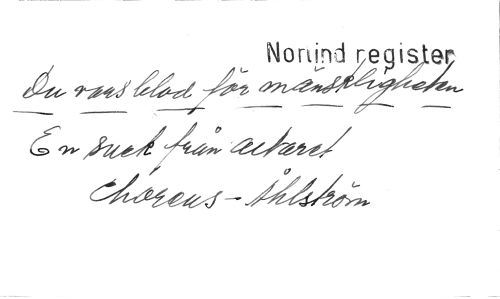 Nonind register
Du vars blod för mänskligheten
En suck från altaret
Choræus - Åhlström